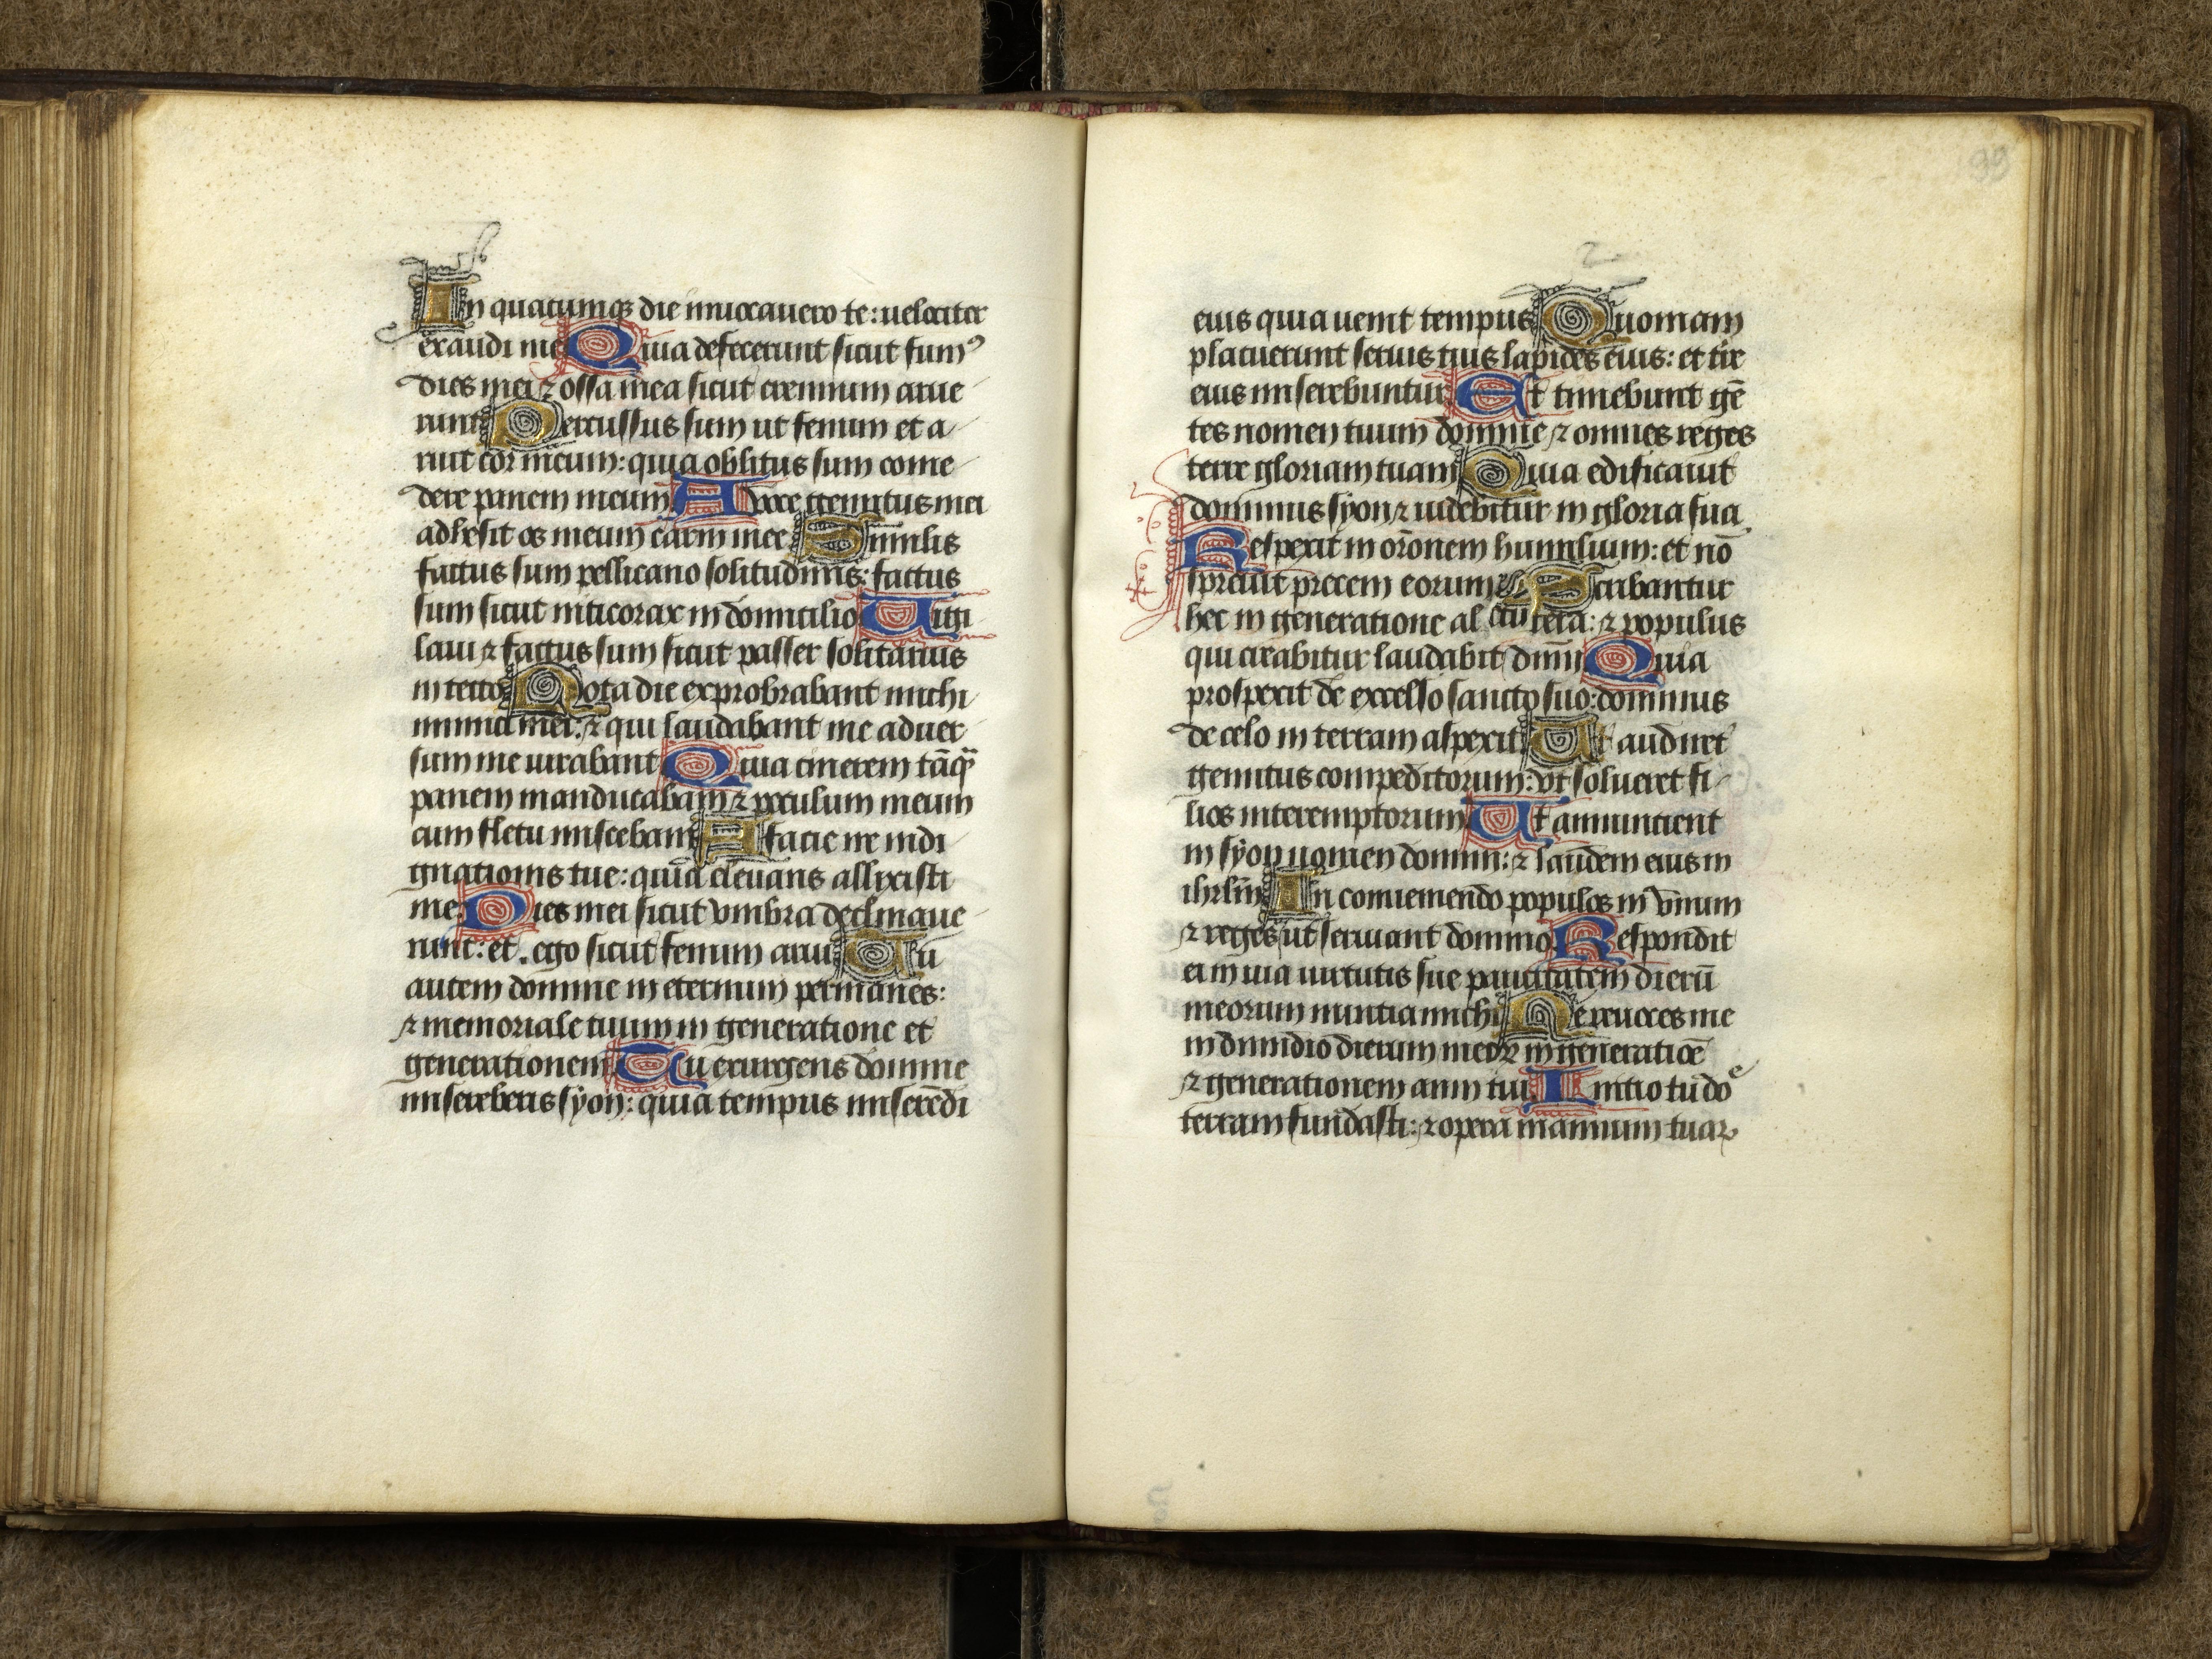 In quacumq3 die inuocauero te: velociter
exaudi me Quia defecerunt sicut fumꝰ
dies mei ⁊ ossa mea sicut cremium arue
runt Percussus sum ut fenum et a
ruit cor meum: quia oblitus sum come
dere panem meum A voce gemitus mei
adhesit os meum carni mee Similis
factus sum pellicano solitudinis: factus
sum sicut nicticorax in domicilio Uigi
laui ⁊ factus sum sicut passer solitarius
in tecto Tota die exprobrabant michi
inimici mei: ⁊ qui laudabant me aduer
sum me iurabant Quia cinerem tāq̄
panem manducabam ⁊ poculum meum
cum fletu miscebam A facie ire indi
gnationis tue: quia eleuans allixisti
me Dies mei sicut vmbra declinaue
runt: et ego sicut fenum arui Tu
autem domine in eternum permanes:
⁊ memoriale tuum in generatione et
generationem Tu exurgens domine
misereberis syon: quia tempus miserēdi
99
2
eius quia uenit tempus Quoniam
placuerunt seruis tuis lapides eius: et t̄re
eius miserebuntur Et timebunt gē
tes nomen tuum domine ⁊ omnes reges
terre gloriam tuam Quia edificauit
dominus syon ⁊ uidebitur in gloria sua
Respexit in or̄onem humilium: et nō
spreuit precem eorum Scribantur
hec in generatione altera: ⁊ populus
qui creabitur laudabit dn̄m Quia
prospexit de excelso sancto suo: dominus
de celo in terram aspexit Ut audiret
gemitus compeditorum: vt solueret fi
lios interemptorum Ut annuntient
in syon nomen domini: ⁊ laudem eius in
ihrl̄m In conueniendo populos in vnum
⁊ reges ut seruiant domino Respondit
ei in uia uirtutis sue paucitatem dierū
meorum nuntia michi Ne reuoces me
in dimidio dierum meoꝝ in generatiōe
⁊ generationem anni tui Initio tu doᵉ
terram fundasti: ⁊ opera manuum tuaꝝ